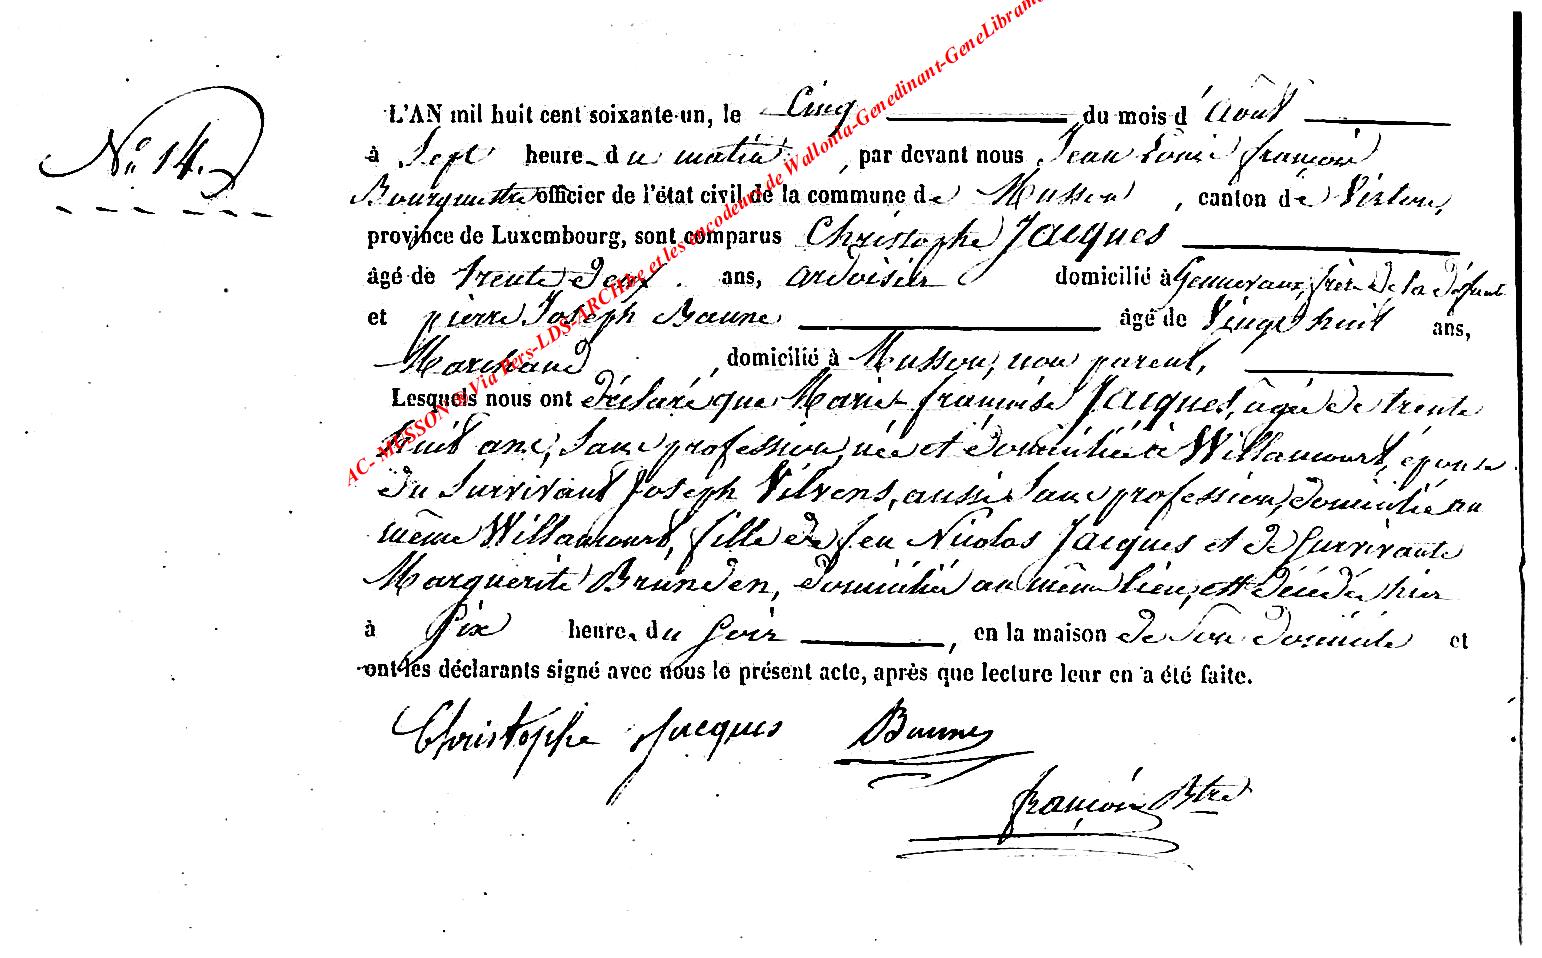 N° 14.
L'AN mil huit cent soixante-un, le Cinq du mois d'Août
à Sept heures du matin, par devant nous Jean Louis françois
Bourguettre officier de l'état civil de la commune de Musson, canton de Virton,
province de Luxembourg, sont comparus Christophe Jacques
âgé de trente deux ans, ardoisier domicilié à Gennevaux, frère de la défunte
et pierre Joseph Baune âgé de Vingt huit ans,
Marchand, domicilié à Musson, non parent,
Lesquels nous ont déclaré que Marie françoise Jacques, âgée de trente
huit ans, sans profession, née et domiciliée à Willancourt, épouse
du survivant Joseph Vilvens, aussi sans profession, domicilié au
même Willancourt, fille de feu Nicolas Jacques et de survivante
Marguerite Brunden, domiciliée au même lieu, est décédée hier
à six heures du soir, en la maison de son domicile et
ont les déclarants signé avec nous le présent acte, après que lecture leur en a été faite.
Christophe Jacques Baune
françois Btre
AC- MUSSON & Via Pers-LDS-ARCHbe et les encodeurs de Wallonia-Genedinant-GeneLibramo